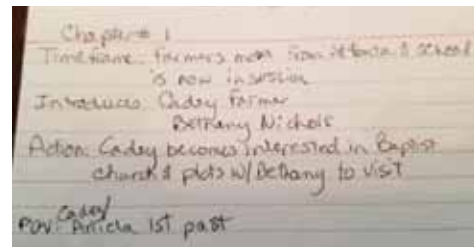 Chapter # 1
Timeframe: Farmers move from & school
is now in session
Introduces: Cadey Farmer
Bethany Nichols
Action: Cadey becomes interested in Baptist
church & plots w/Bethany to visit
Cadey/
POV: 1st past